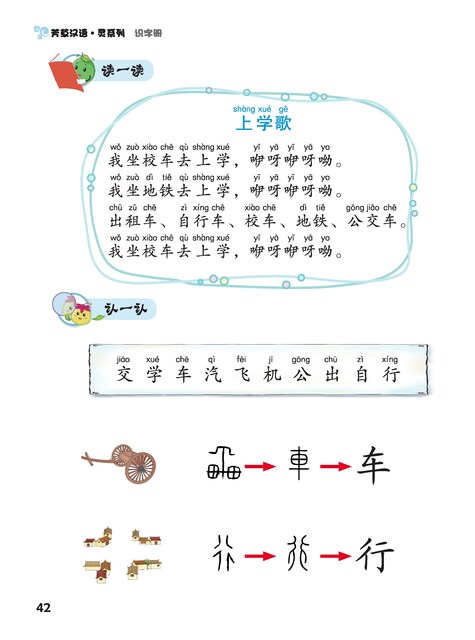 芳草汉语·灵系列 识字册
读一读
shàng xué gē
上学歌
wǒ zuò xiào chē qù shàng xué yī yā yī yā yo
我坐校车去上学，咿呀咿呀呦。
wǒ zuò dì tiě qù shàng xué yī yā yī yā yo
我坐地铁去上学，咿呀咿呀呦。
chū zū chē zì xíng chē xiào chē dì tiě gōng jiāo chē
出租车、自行车、校车、地铁、公交车。
wǒ zuò xiào chē qù shàng xué yī yā yī yā yo
我坐校车去上学，咿呀咿呀呦。
认一认
jiāo xué chē qì fēi jī gōng chū zì xíng
交 学 车 汽 飞 机 公 出 自 行
車 车
行
42